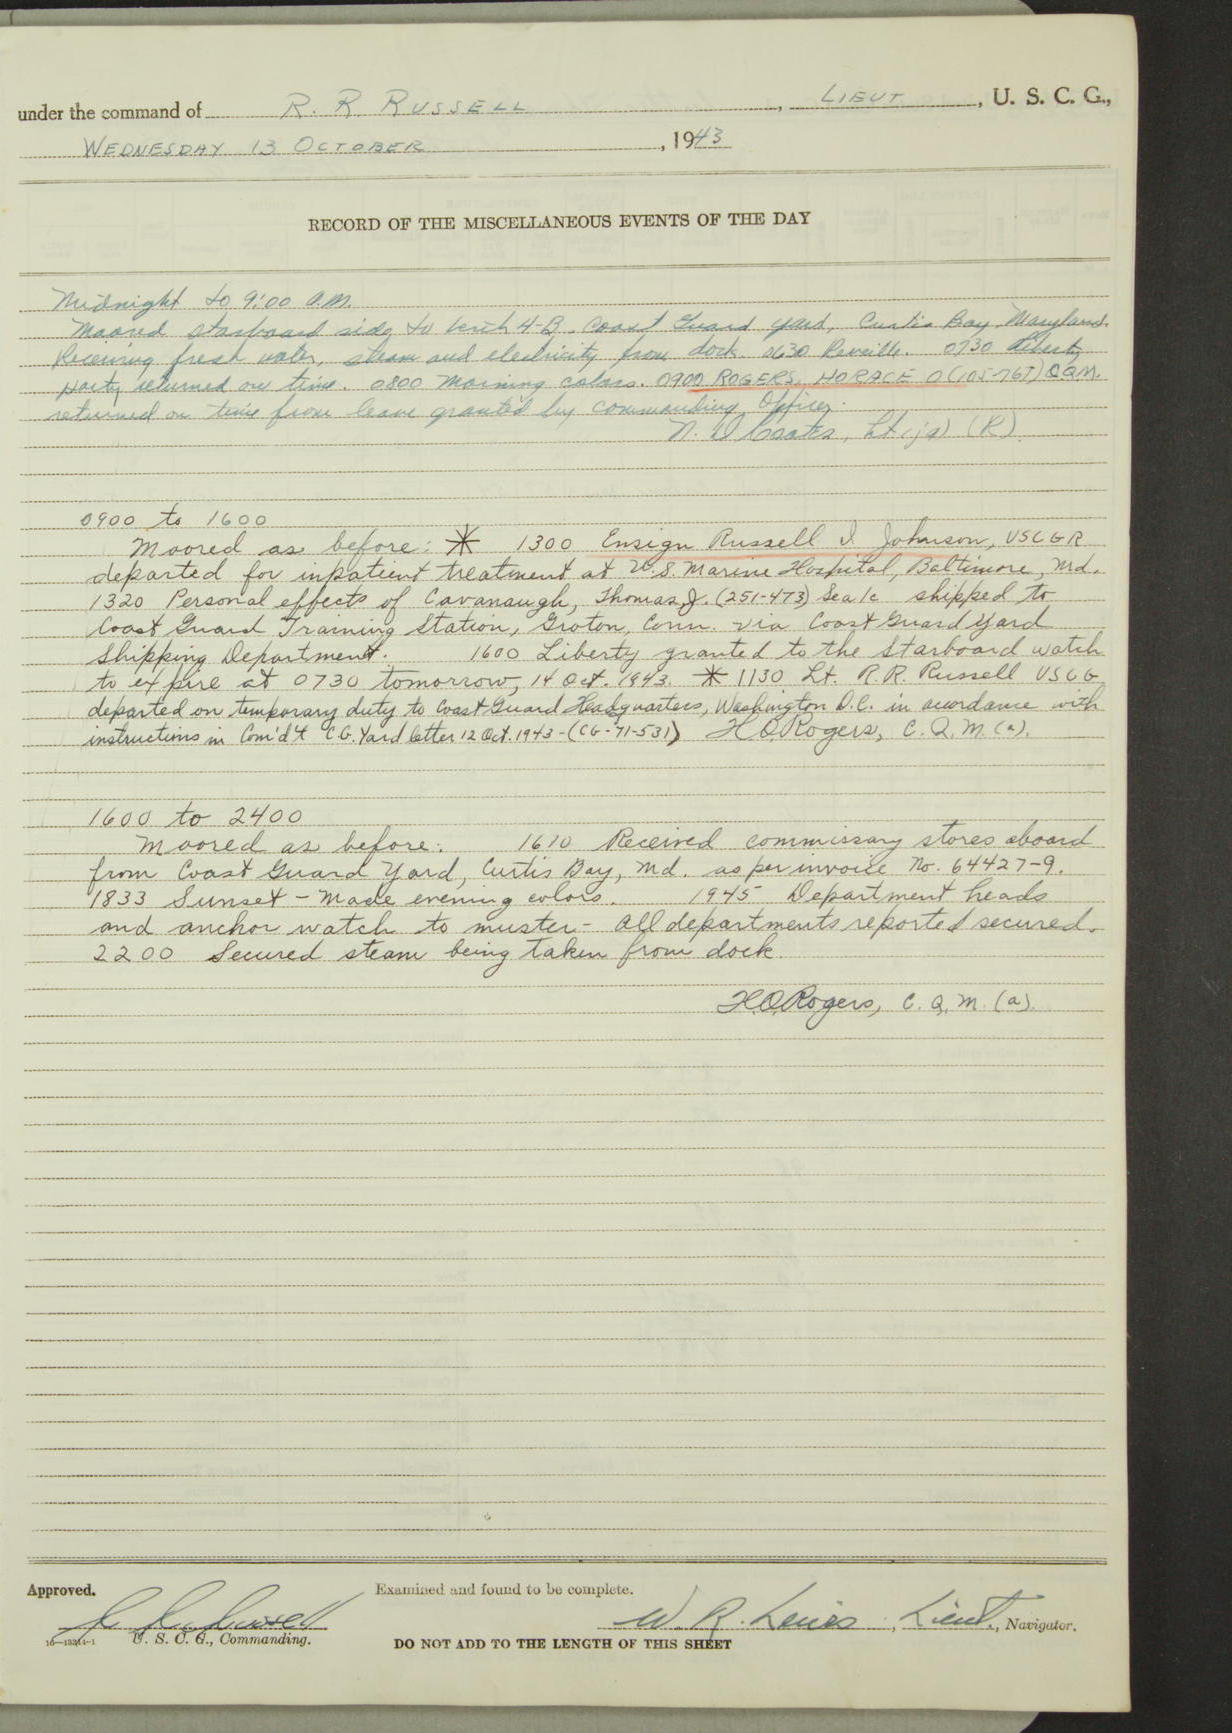 under the command of R. R RUSSELL, LIEUT, U. S. C. G.,
WEDNESDAY 13 OCTOBER, 1943
RECORD OF THE MISCELLANEOUS EVENTS OF THE DAY
Midnight to 9:00 A.M.
Moored starboard side to berth 4-B. Coast Guard Yard, Curtis Bay Maryland.
Receiving fresh water, steam and electricity from dock. 0630 Reveille. 0730 Liberty
party returned on time. 0800 Morning colors. 0900 ROGERS, HORACE O (105-767) C.Q.M.
returned on time from leave granted by commanding Officer.
N. D Coates, Lt (jg) (R)
0900 to 1600
Moored as before: * 1300 Ensign Russell I. Johnson, USCGR
departed for inpatient treatment at U.S. Marine Hospital, Baltimore, Md.
1320 Personal effects of Cavanaugh, Thomas J. (251-473) Sea 1c shipped to
Coast Guard Training Station, Groton, Conn. via Coast Guard Yard
Shipping Department. 1600 Liberty granted to the starboard watch
to expire at 0730 tomorrow, 14 Oct. 1943. * 1130 Lt. R.R. Russell USCG
departed on temporary duty to Coast Guard Headquarters, Washington D.C. in accordance with
instructions in Com'd't C.G. Yard letter 12 Oct. 1943-(CG-71-531) H.O. Rogers, C.Q.M. (a).
1600 to 2400
Moored as before. 1610 Received commissary stores aboard
from Coast Guard Yard, Curtis Bay, Md. as per invoice No. 64427-9.
1833 Sunset - Made evening colors. 1945 Department heads
and anchor watch to muster - all departments reported secured.
2200 Secured steam being taken from dock.
H.O. Rogers, C. Q. M. (a)
Approved. Examined and found to be complete.
W. R. Lewis, Lieut., Navigator.
16-13244-1 U. S. C. G., Commanding.
DO NOT ADD TO THE LENGTH OF THIS SHEET